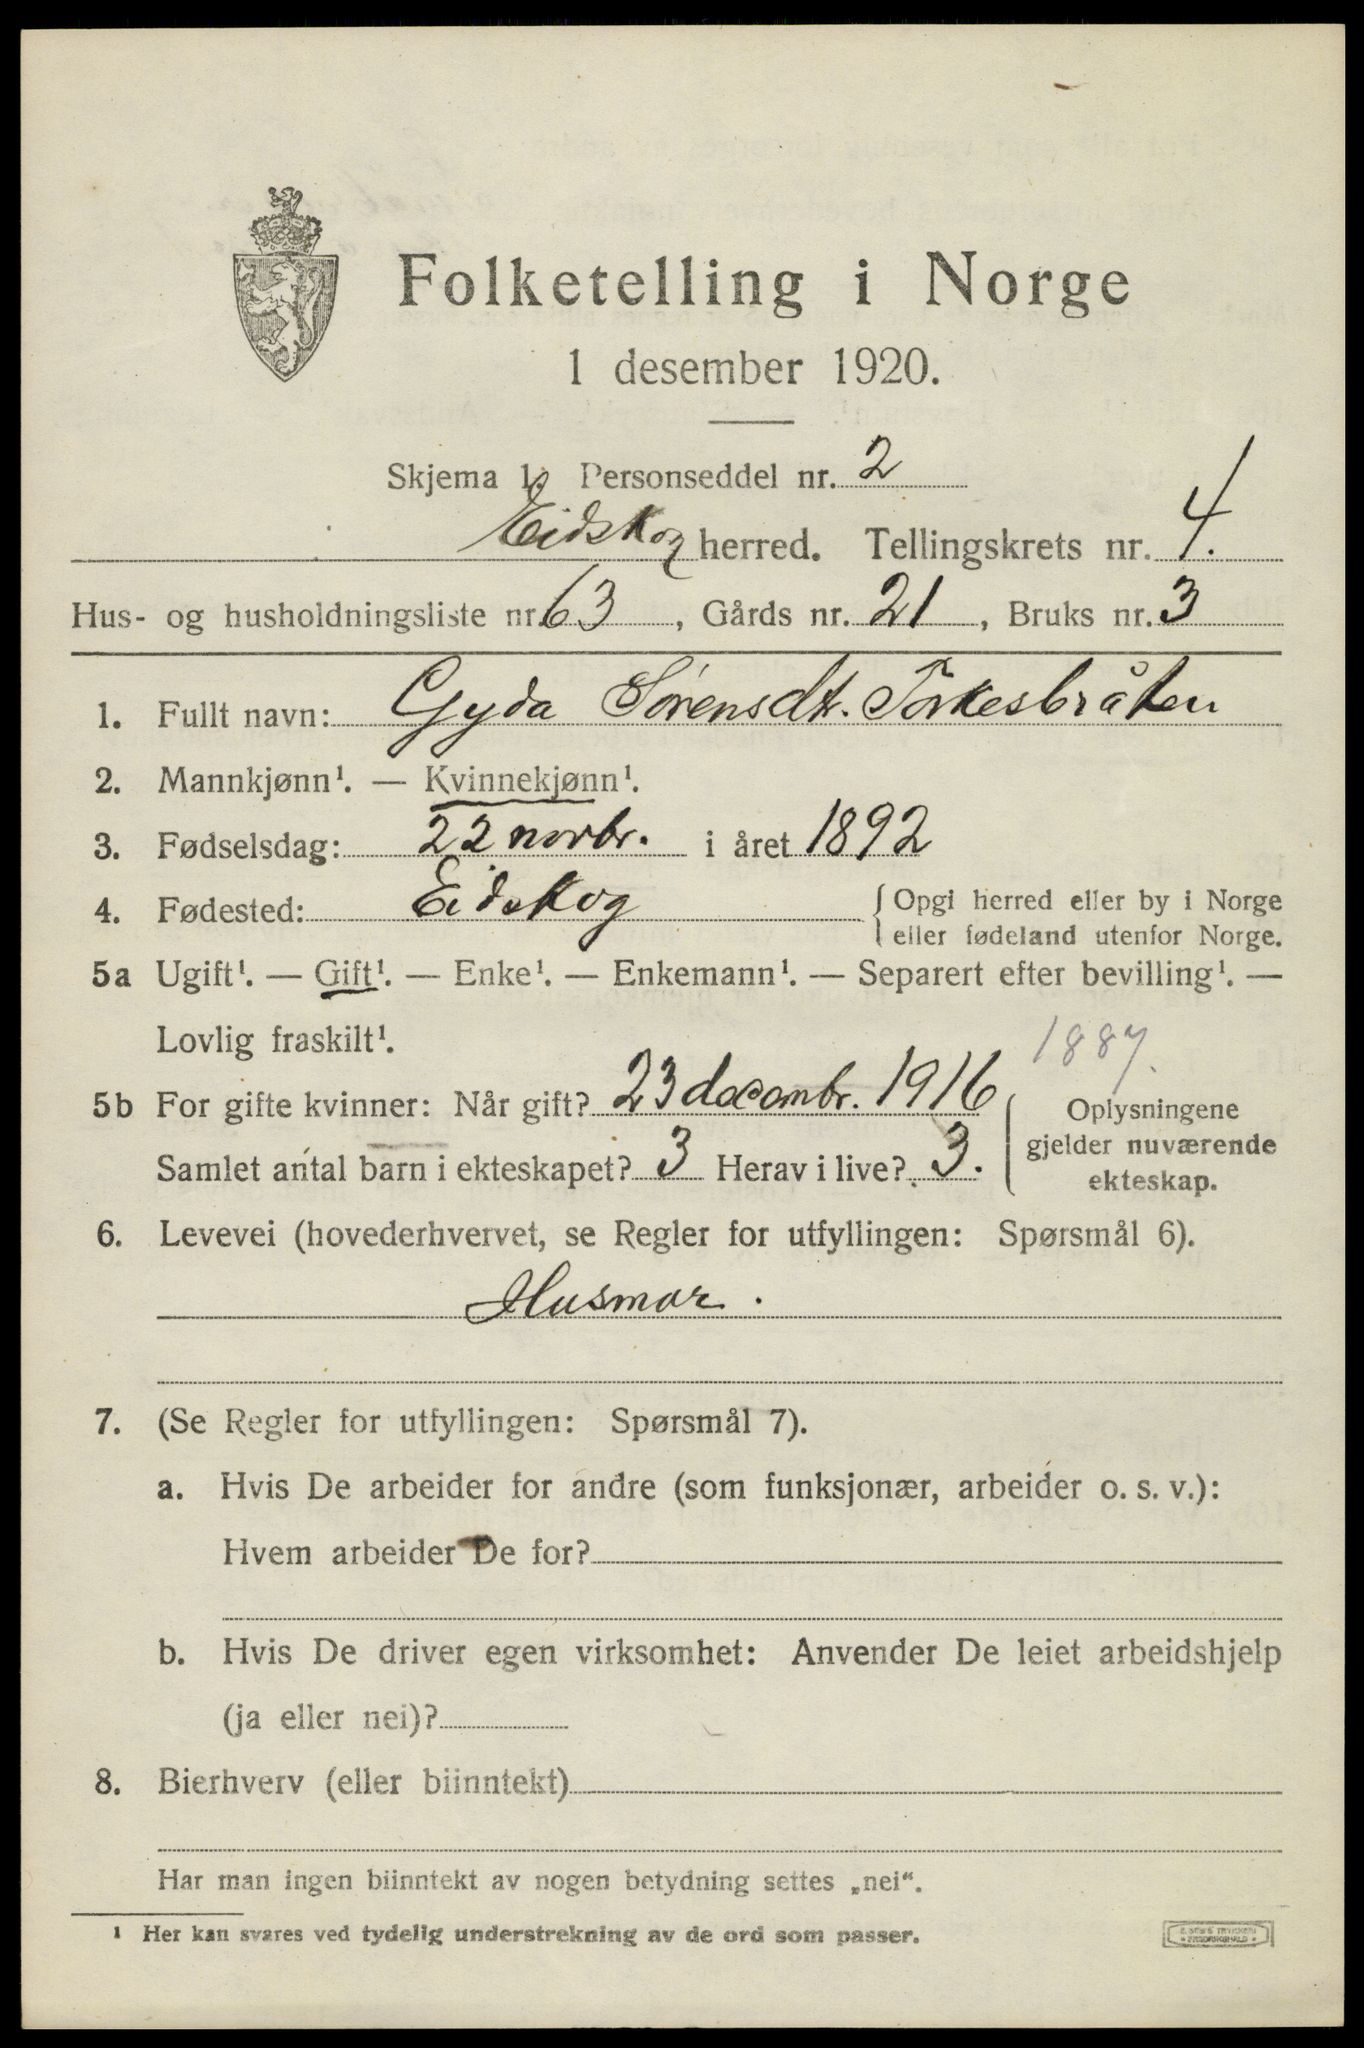 Folketelling i Norge
1 desember 1920.
Skjema 1. Personseddel nr. 2
Eidskog herred. Tellingskrets nr. 4.
Hus- og husholdningsliste nr. 63, Gårds nr. 21, Bruks nr. 3
1. Fullt navn: Gyda Sørensdtr. Torkesbråten
2. Mannkjønn¹. — Kvinnekjønn¹.
3. Fødselsdag: 22 novbr. i året 1892
4. Fødested: Eidskog { Opgi herred eller by i Norge
eller fødeland utenfor Norge.
5a Ugift¹. — Gift¹. — Enke¹. — Enkemann¹. — Separert efter bevilling¹. —
Lovlig fraskilt¹.
1887.
5b For gifte kvinner: Når gift? 23 decembr. 1916
Samlet antal barn i ekteskapet? 3 Herav i live? 3.
Oplysningene
gjelder nuværende
ekteskap.
6. Levevei (hovederhvervet, se Regler for utfyllingen: Spørsmål 6).
Husmor.
7. (Se Regler for utfyllingen: Spørsmål 7).
a. Hvis De arbeider for andre (som funksjonær, arbeider o. s. v.):
Hvem arbeider De for?
b. Hvis De driver egen virksomhet: Anvender De leiet arbeidshjelp
(ja eller nei)?
8. Bierhverv (eller biinntekt)
Har man ingen biinntekt av nogen betydning settes „nei“.
¹ Her kan svares ved tydelig understrekning av de ord som passer.